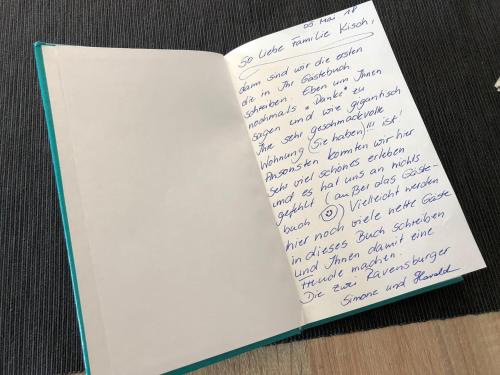 05 Mai 18
So liebe Familie Kisch,
dann sind wir die ersten
die in Ihr Gästebuch
schreiben. Eben um Ihnen
nochmals "Danke" zu
sagen und wie gigantisch
Ihre sehr geschmackvolle
Wohnung (Sie haben)!!! ist!
Ansonsten konnten wir hier
sehr viel schönes erleben
und es hat uns an nichts
gefehlt (außer das Gäste-
buch ☺) Vielleicht werden
hier noch viele nette Gäste
in dieses Buch schreiben
und Ihnen damit eine
Freude machen.
Die zwei Ravensburger
Simone und Harald